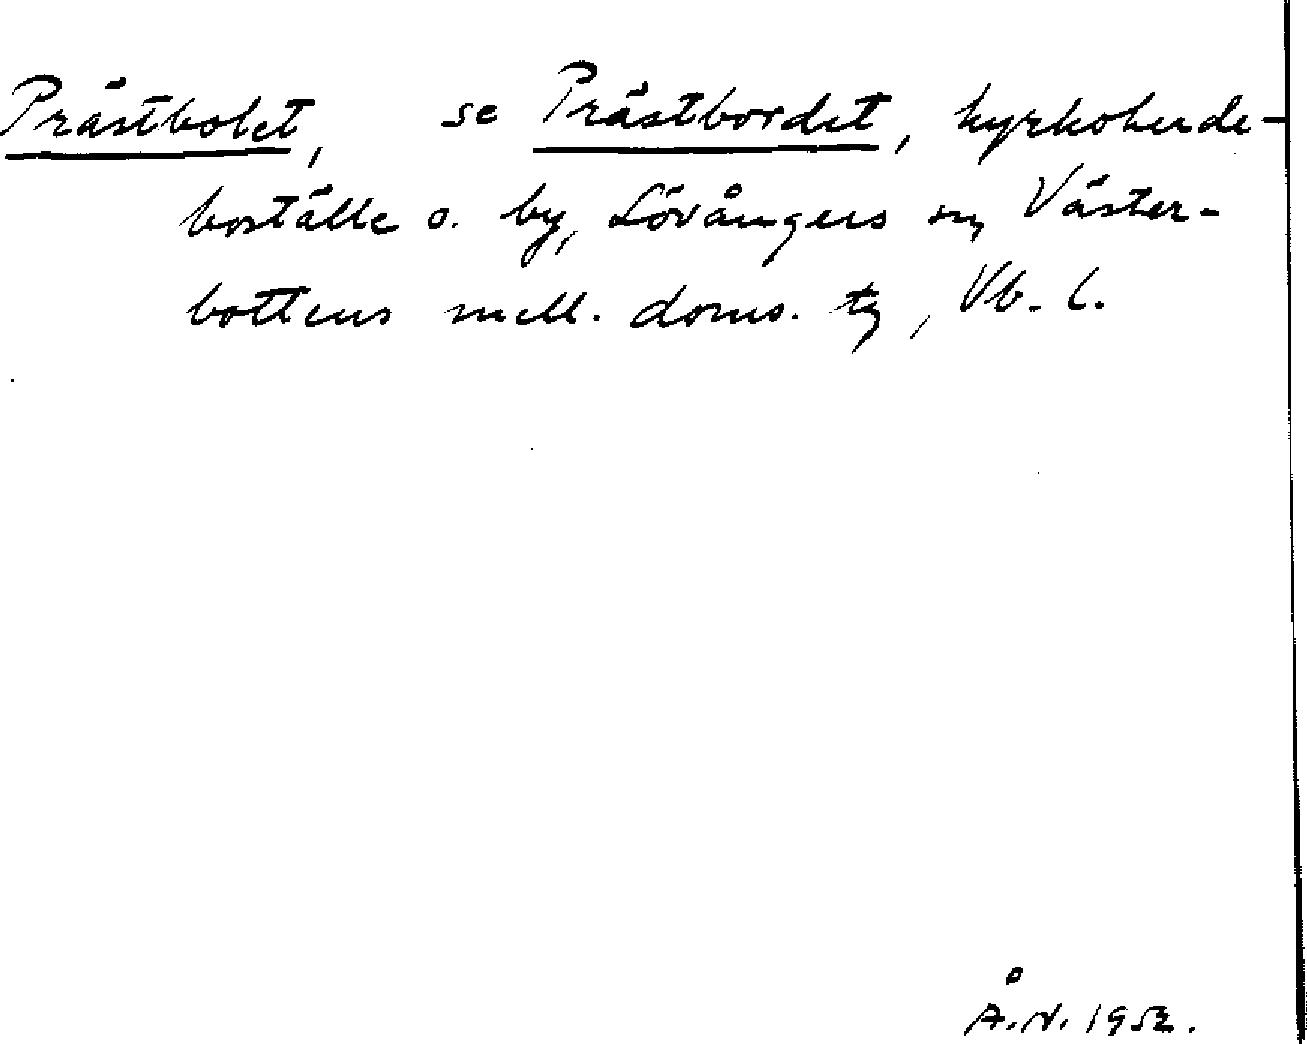 Prästbolet, se Prästbordet, kyrkoherde-
boställe o. by, Lövångers sn, Väster-
bottens mell. doms. tg, Vb. l.
Å.N. 1952.